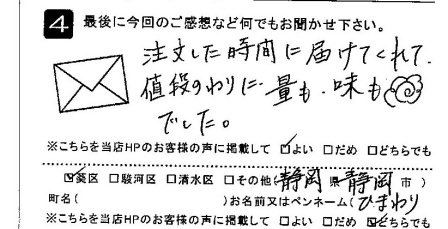 4 最後に今回のご感想など何でもお聞かせ下さい。
注文した時間に届けてくれて、
値段のわりに量も味も
でした。
※こちらを当店HPのお客様の声に掲載して ☑よい □だめ □どちらでも
☑葵区 □駿河区 □清水区 □その他(静岡県静岡市)
町名( )お名前又はペンネーム(ひまわり
※こちらを当店HPのお客様の声に掲載して □よい □だめ ☑どちらでも